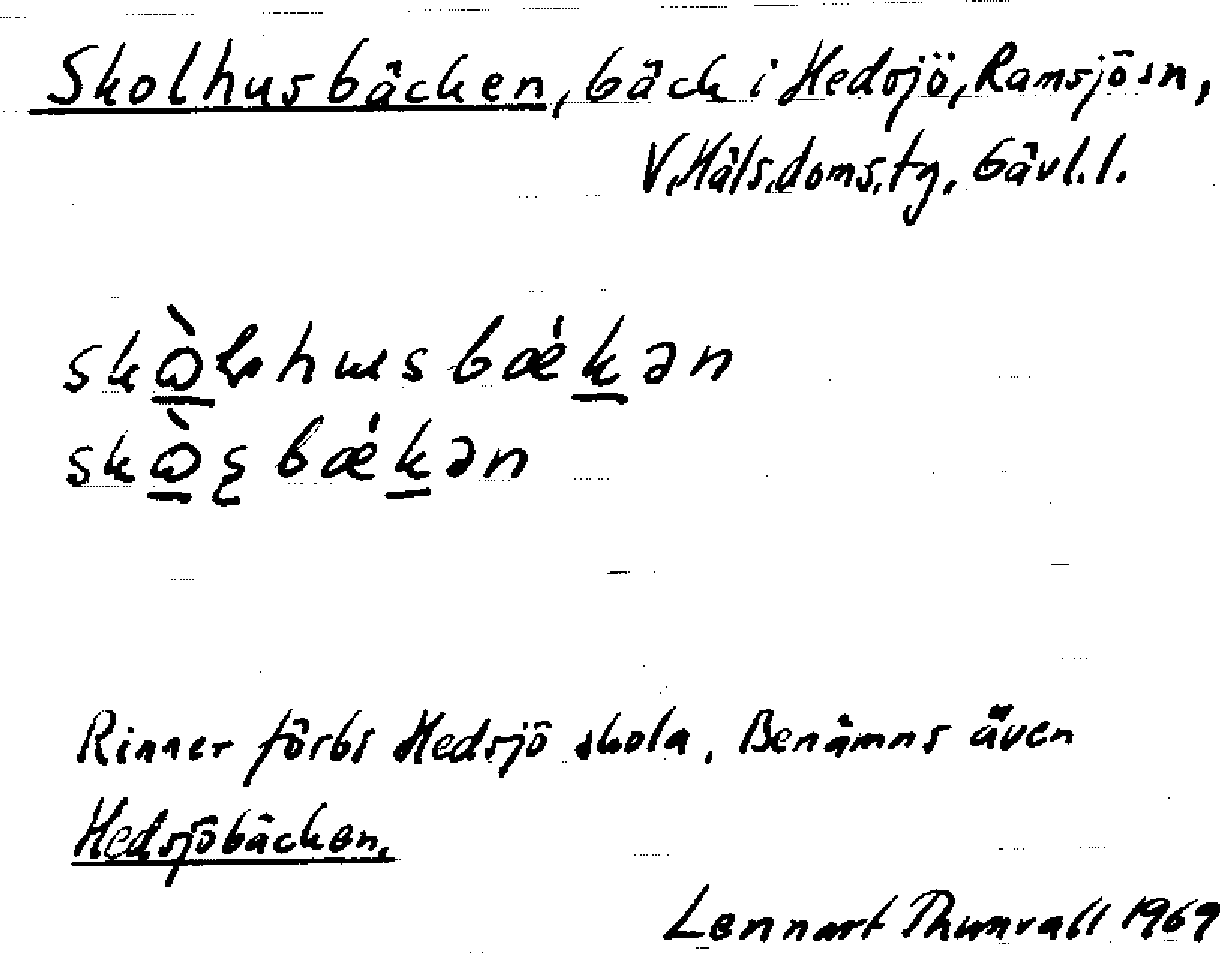 Skolhusbäcken, bäck i Hedsjö, Ramsjö sn,
V. Häls. doms. tg, Gävl. l.
skὰlhusbǽkən
skὰʂbǽkən
Rinner förbi Hedsjö skola. Benämns även
Hedsjöbäcken.
Lennart Thunvall 1969